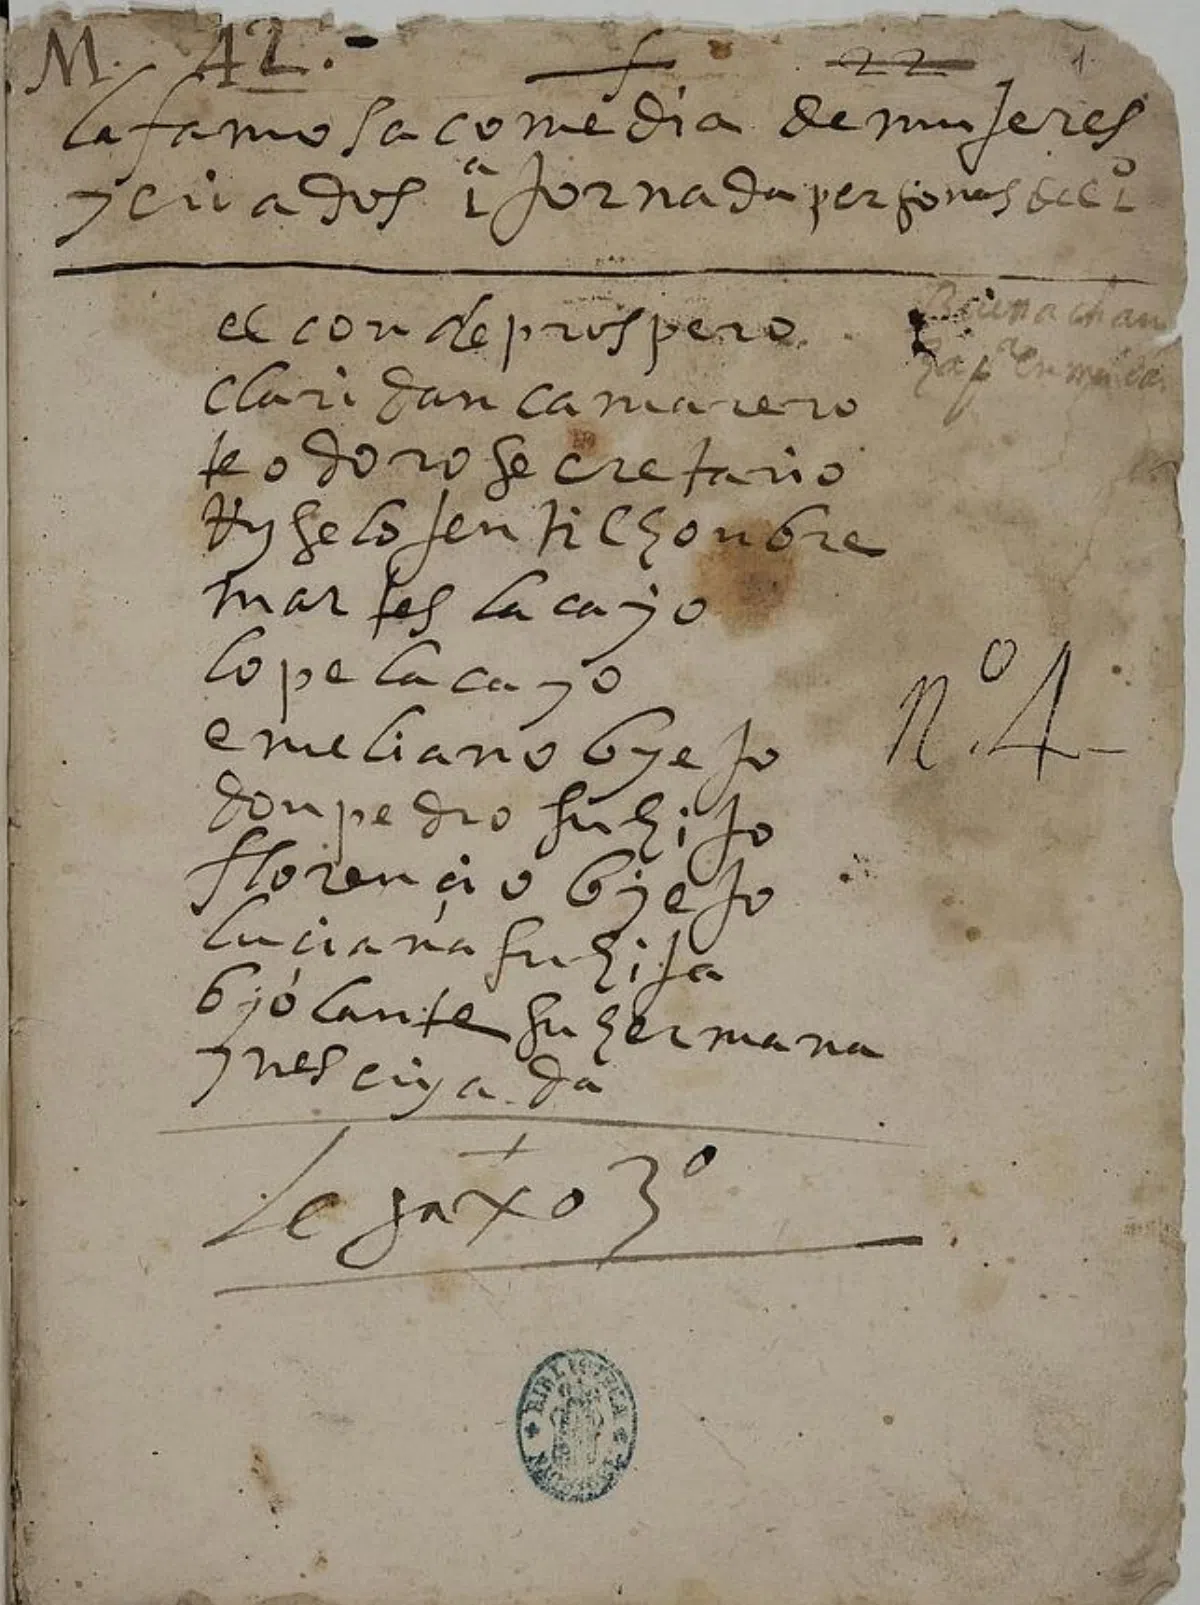 M. 42.-
22
1
la famosa comedia de mujeres
y criados 1ª jornada personas de la 1
el conde prospero
claridan camarero
teodoro secretario
riyselo jentilhonbre
martes lacayo
lope lacayo
emeliano byejo
don pedro su hijo
florencio byejo
luciana su hija
byolante su hermana
ynes criyada
nº. 4
Legaxo 3º
BIBLIOTECA